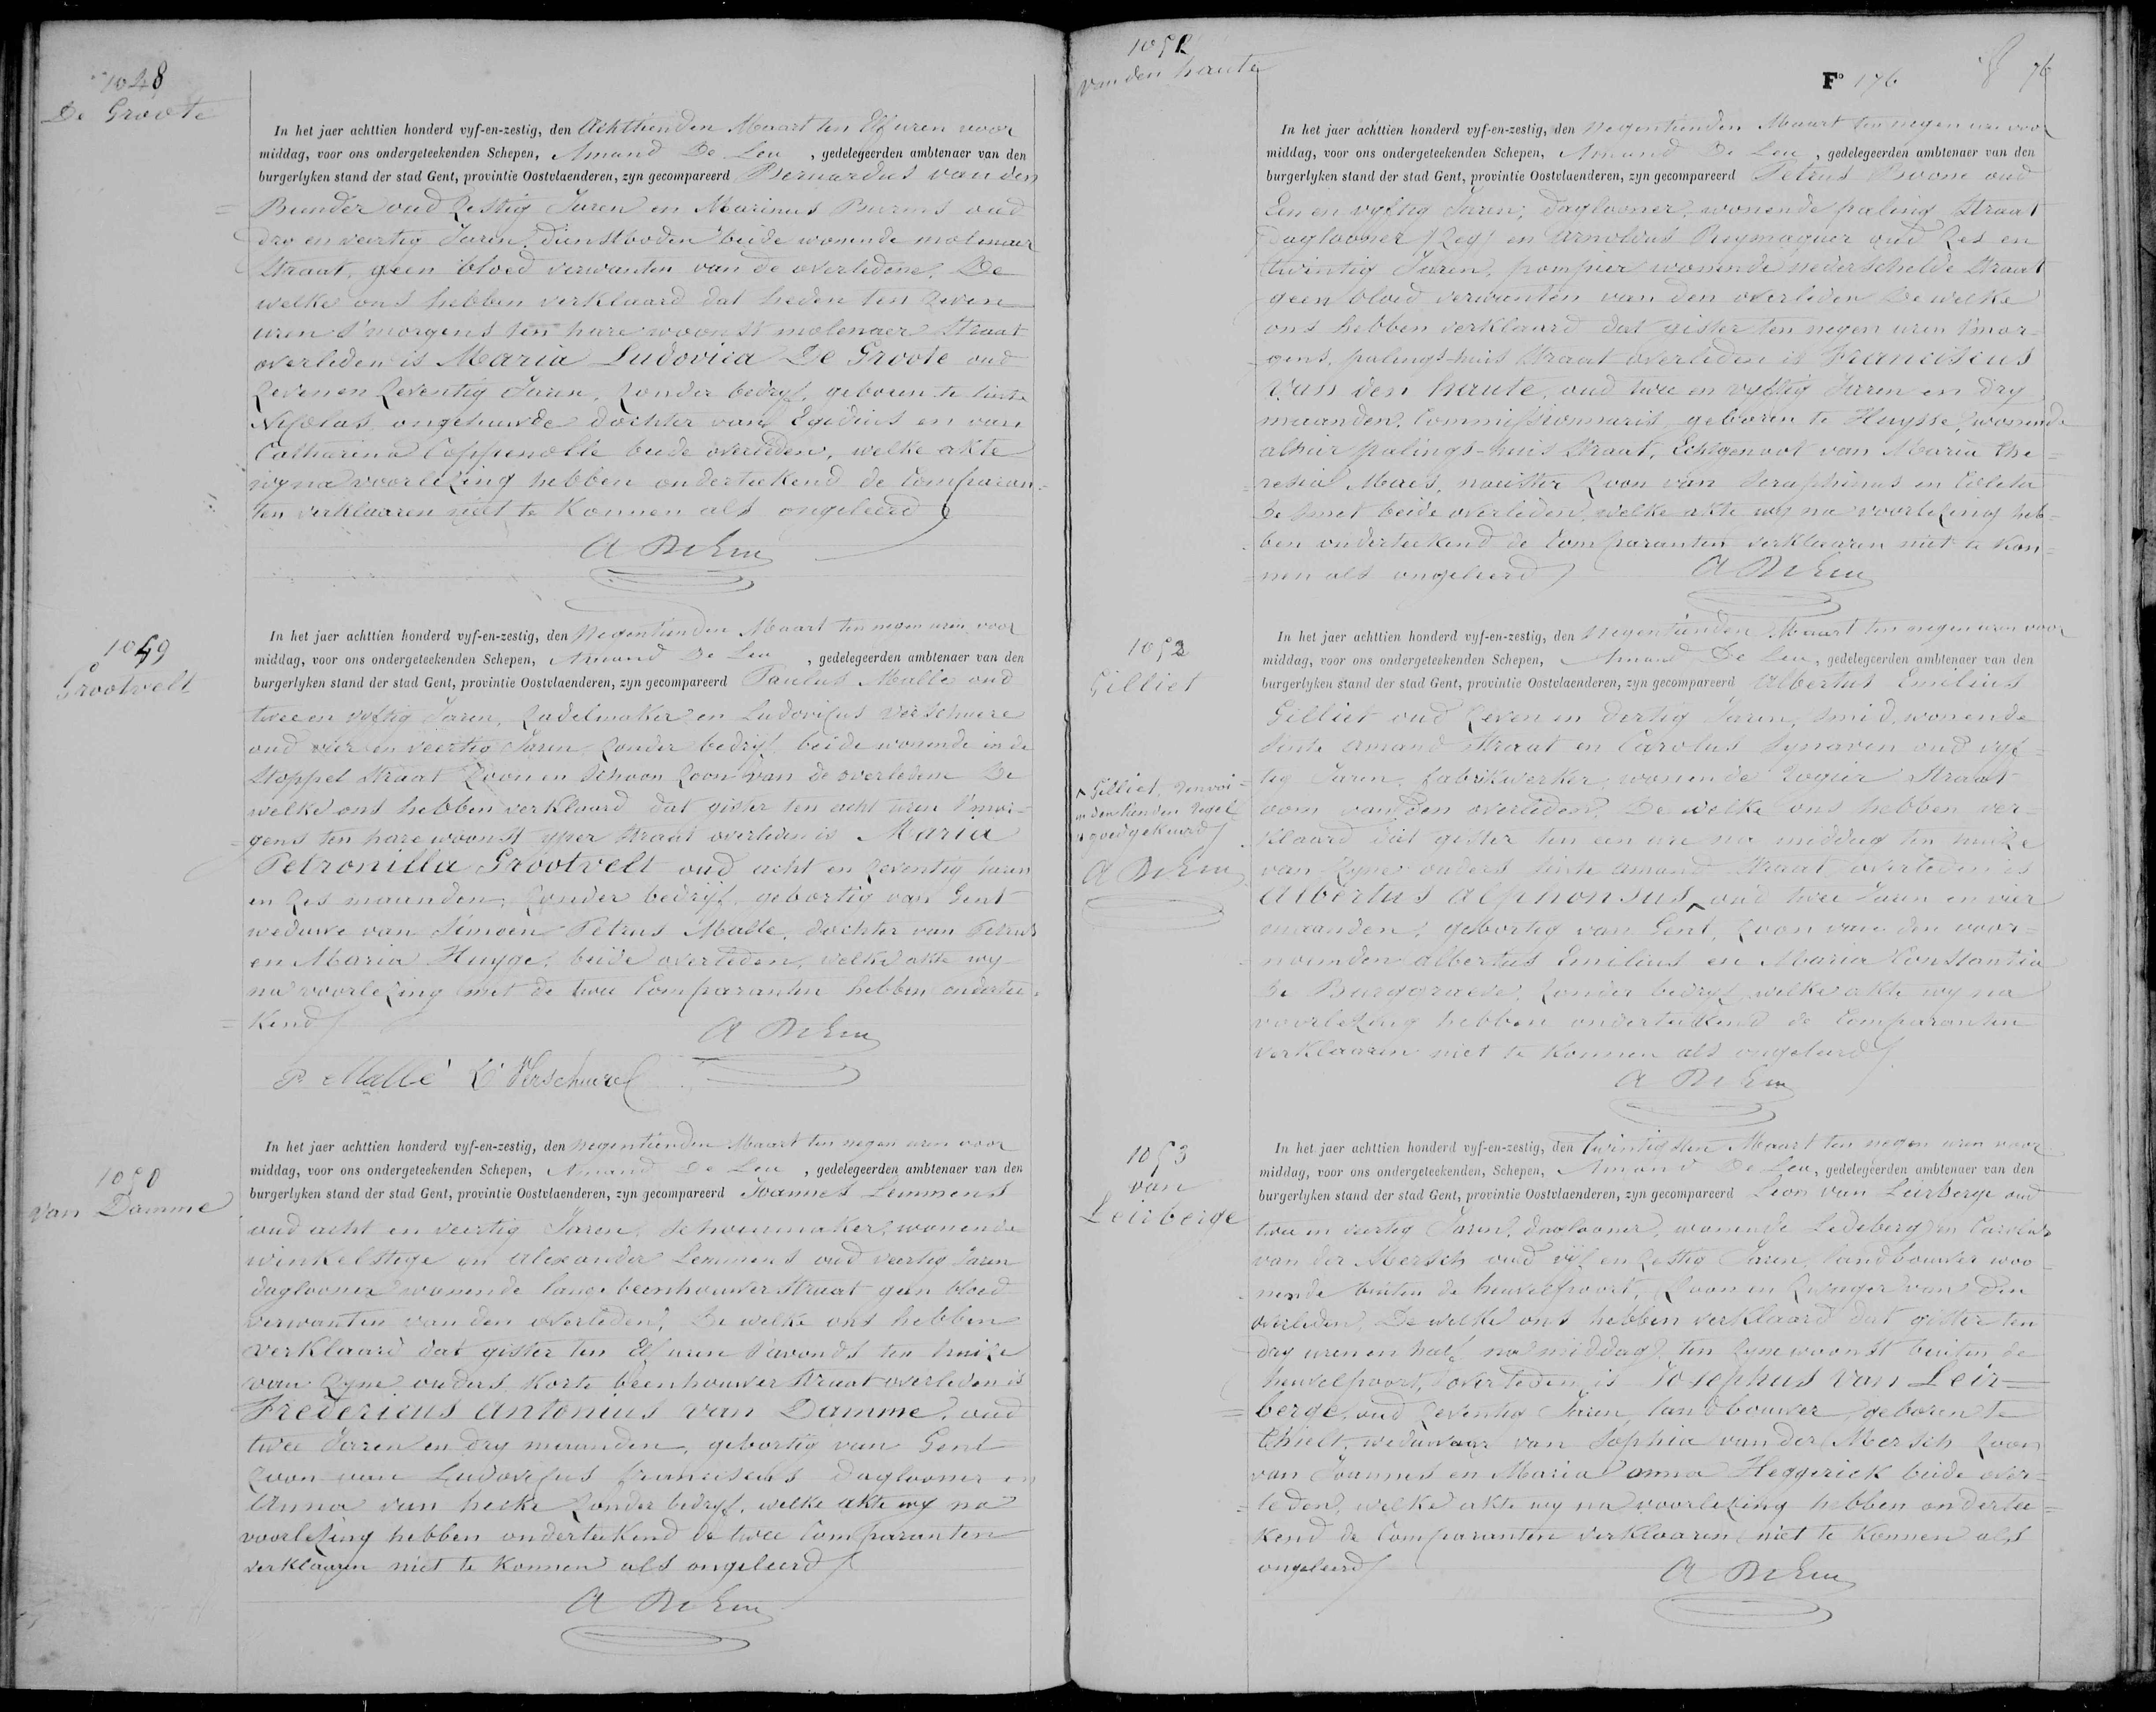 1048
De Groote
In het jaer achttien honderd vyf-en-zestig, den Achttienden Maart ten Elf uren voor
middag, voor ons ondergeteekenden Schepen, Amand De Leu, gedelegeerden ambtenaer van den
burgerlyken stand der stad Gent, provintie Oostvlaenderen, zyn gecompareerd Bernardus van den
Bunder oud Zestig Jaren en Marinus Burms oud
dry en veertig Jaren, dienstboden beide wonende molenaer
Straat, geen bloed verwanten van de overledene. De
welke ons hebben verklaard dat heden ten Zeven
uren s'morgens ten hare woonst molenaer Straat
overleden is Maria Ludovica De Groote oud
Zevenen Zeventig Jaren, Zonder bedryf, geboren te Sinte
Nicolas ongehuwde dochter van Egidius en van
Catharina Coppenolle beide overleden, welke akte
wy na voorlezing hebben onderteekend de Comparan=
ten verklaaren niet te Konnen als ongeleerd
A De Leu
1049
Grootvelt
In het jaer achttien honderd vyf-en-zestig, den Negentienden Maart ten negen uren voor
middag, voor ons ondergeteekenden Schepen, Amand De Leu, gedelegeerden ambtenaer van den
burgerlyken stand der stad Gent, provintie Oostvlaenderen, zyn gecompareerd Paulus Malle oud
twee en vyftig Jaren, Zadelmaker en Ludovicus Verschuere
oud vier en veertig Jaren Zonder bedryf beide wonende in de
Stoppel Straat Zoon en Schoon Zoon van de overledene De
welke ons hebben verklaard dat gister ten acht uren s'mor=
gens ten hare woonst yper Straat overleden is Maria
Petronilla Grootvelt oud acht en Zeventig Jaren
en Zes maanden, Zonder bedryf, gebortig van Gent
weduwe van Simoen Petrus Malle, dochter van Petrus
en Maria Huyge, beide overleden, welke akte wy
na voorlezing met de twee Comparanten hebben ondertee=
kend
A De Leu
P. Malle L. Verschuere
1050
van Damme
In het jaer achttien honderd vyf-en-zestig, den negentienden Maart ten negen uren voor
middag, voor ons ondergeteekenden Schepen, Amand De Leu, gedelegeerden ambtenaer van den
burgerlyken stand der stad Gent, provintie Oostvlaenderen, zyn gecompareerd Joannes Lemmens
oud acht en veertig Jaren, Schoenmaker, wonende
winkelstege en Alexander Lemmens oud veertig Jaren
daglooner wonende lange beenhouwer Straat geen bloed
verwanten van den overleden, De welke ons hebben
verklaard dat gister ten Elf uren s'avonds ten huize
van Zyne ouders Korte beenhouwer Straat overleden is
Fredericus Antonius van Damme, oud
twee Jaren en dry maanden, gebortig van Gent
Zoon van Ludovicus franciscus daglooner en
Anna van hecke Zonder bedryf, welke akte wy na
voorlezing hebben onderteekend de twee Comparanten
verklaaren niet te Konnen als ongeleerd
A De Leu
1051
van den haute
F° 176
76
In het jaer achttien honderd vyf-en-zestig, den negentienden Maart ten negen ure voor
middag, voor ons ondergeteekenden Schepen, Amand De Leu, gedelegeerden ambtenaer van den
burgerlyken stand der stad Gent, provintie Oostvlaenderen, zyn gecompareerd Petrus Boone oud
Een en vyftig Jaren, daglooner, wonende paling Straat
Daglooner en Arnoldus Puymaquer oud Zes en
twintig Jaren, pompier wonende nederschelde Straat
geen bloed verwanten van den overleden De welke
ons hebben verklaard dat gister ten negen uren s'mor=
gens, palings-huis Straat overleden is Franciscus
van den haute, oud twee en vyftig Jaren en dry
maanden, Commissionnaris, geboren te Huysse, wonende
alhier palings-huis Straat, Echtgenoot van Maria The=
resia Maes, naister Zoon van Seraphinus en Coleta
De Smet beide overleden, welke akte wy na voorlezing heb=
ben onderteekend de Comparanten verklaaren niet te Kon=
nen als ongeleerd
A De Leu
1052
Gilliet
In het jaer achttien honderd vyf-en-zestig, den Negentienden Maart ten negen uren voor
middag, voor ons ondergeteekenden Schepen, Amand De Leu, gedelegeerden ambtenaer van den
burgerlyken stand der stad Gent, provintie Oostvlaenderen, zyn gecompareerd Albertus Emelius
Gilliet oud Zeven en dertig Jaren, Smid, wonende
Sinte Amand Straat en Carolus Synaven oud vyf=
tig Jaren, fabrikwerker, wonende Straat
oom van den overleden, De welke ons hebben ver=
klaard dat gister ten een ure na middag ten huize
van Zyne ouders Sinte Amand Straat overleden is
Albertus Alphonsus ^ oud twee Jaren en vier
maanden, gebortig van Gent, Zoon van den voor=
noemden Albertus Emilius en Maria Konstantia
De Burggraeve, Zonder bedryf, welke akte wy na
voorlezing hebben onderteekend de Comparanten
verklaaren niet te Konnen als ongeleerd
A De Leu
^ Gilliet,
in den tienden regel
goedgekeurd
A De Leu
1053
van
Leirberge
In het jaer achttien honderd vyf-en-zestig, den Twintigsten Maart ten negen uren voor
middag, voor ons ondergeteekenden, Schepen, Amand De Leu, gedelegeerden ambtenaer van den
burgerlyken stand der stad Gent, provintie Oostvlaenderen, zyn gecompareerd Leon van Leirberge oud
twee en veertig Jaren, daglooner, wonende Ledeberg en Carolus
van der Mersch oud vyf en Zestig Jaren, landbouwer woo
nende buiten de heuvelpoort, Zoon en Zwager van den
overleden, De welke ons hebben verklaard dat gister ten
dry uren en half na middag, ten Zyne woonst buiten de
heuvelpoort, overleden is Josephus van Leir=
berge, oud Zeventig Jaren, landbouwer, geboren te
Thielt, weduwaar van Sophia van der Mersch Zoon
van Joannes en Maria Anna Heggerick beide over=
leden, welke akte wy na voorlezing hebben ondertee=
kend de Comparanten verklaaren niet te Konnen als
ongeleerd
A De Leu